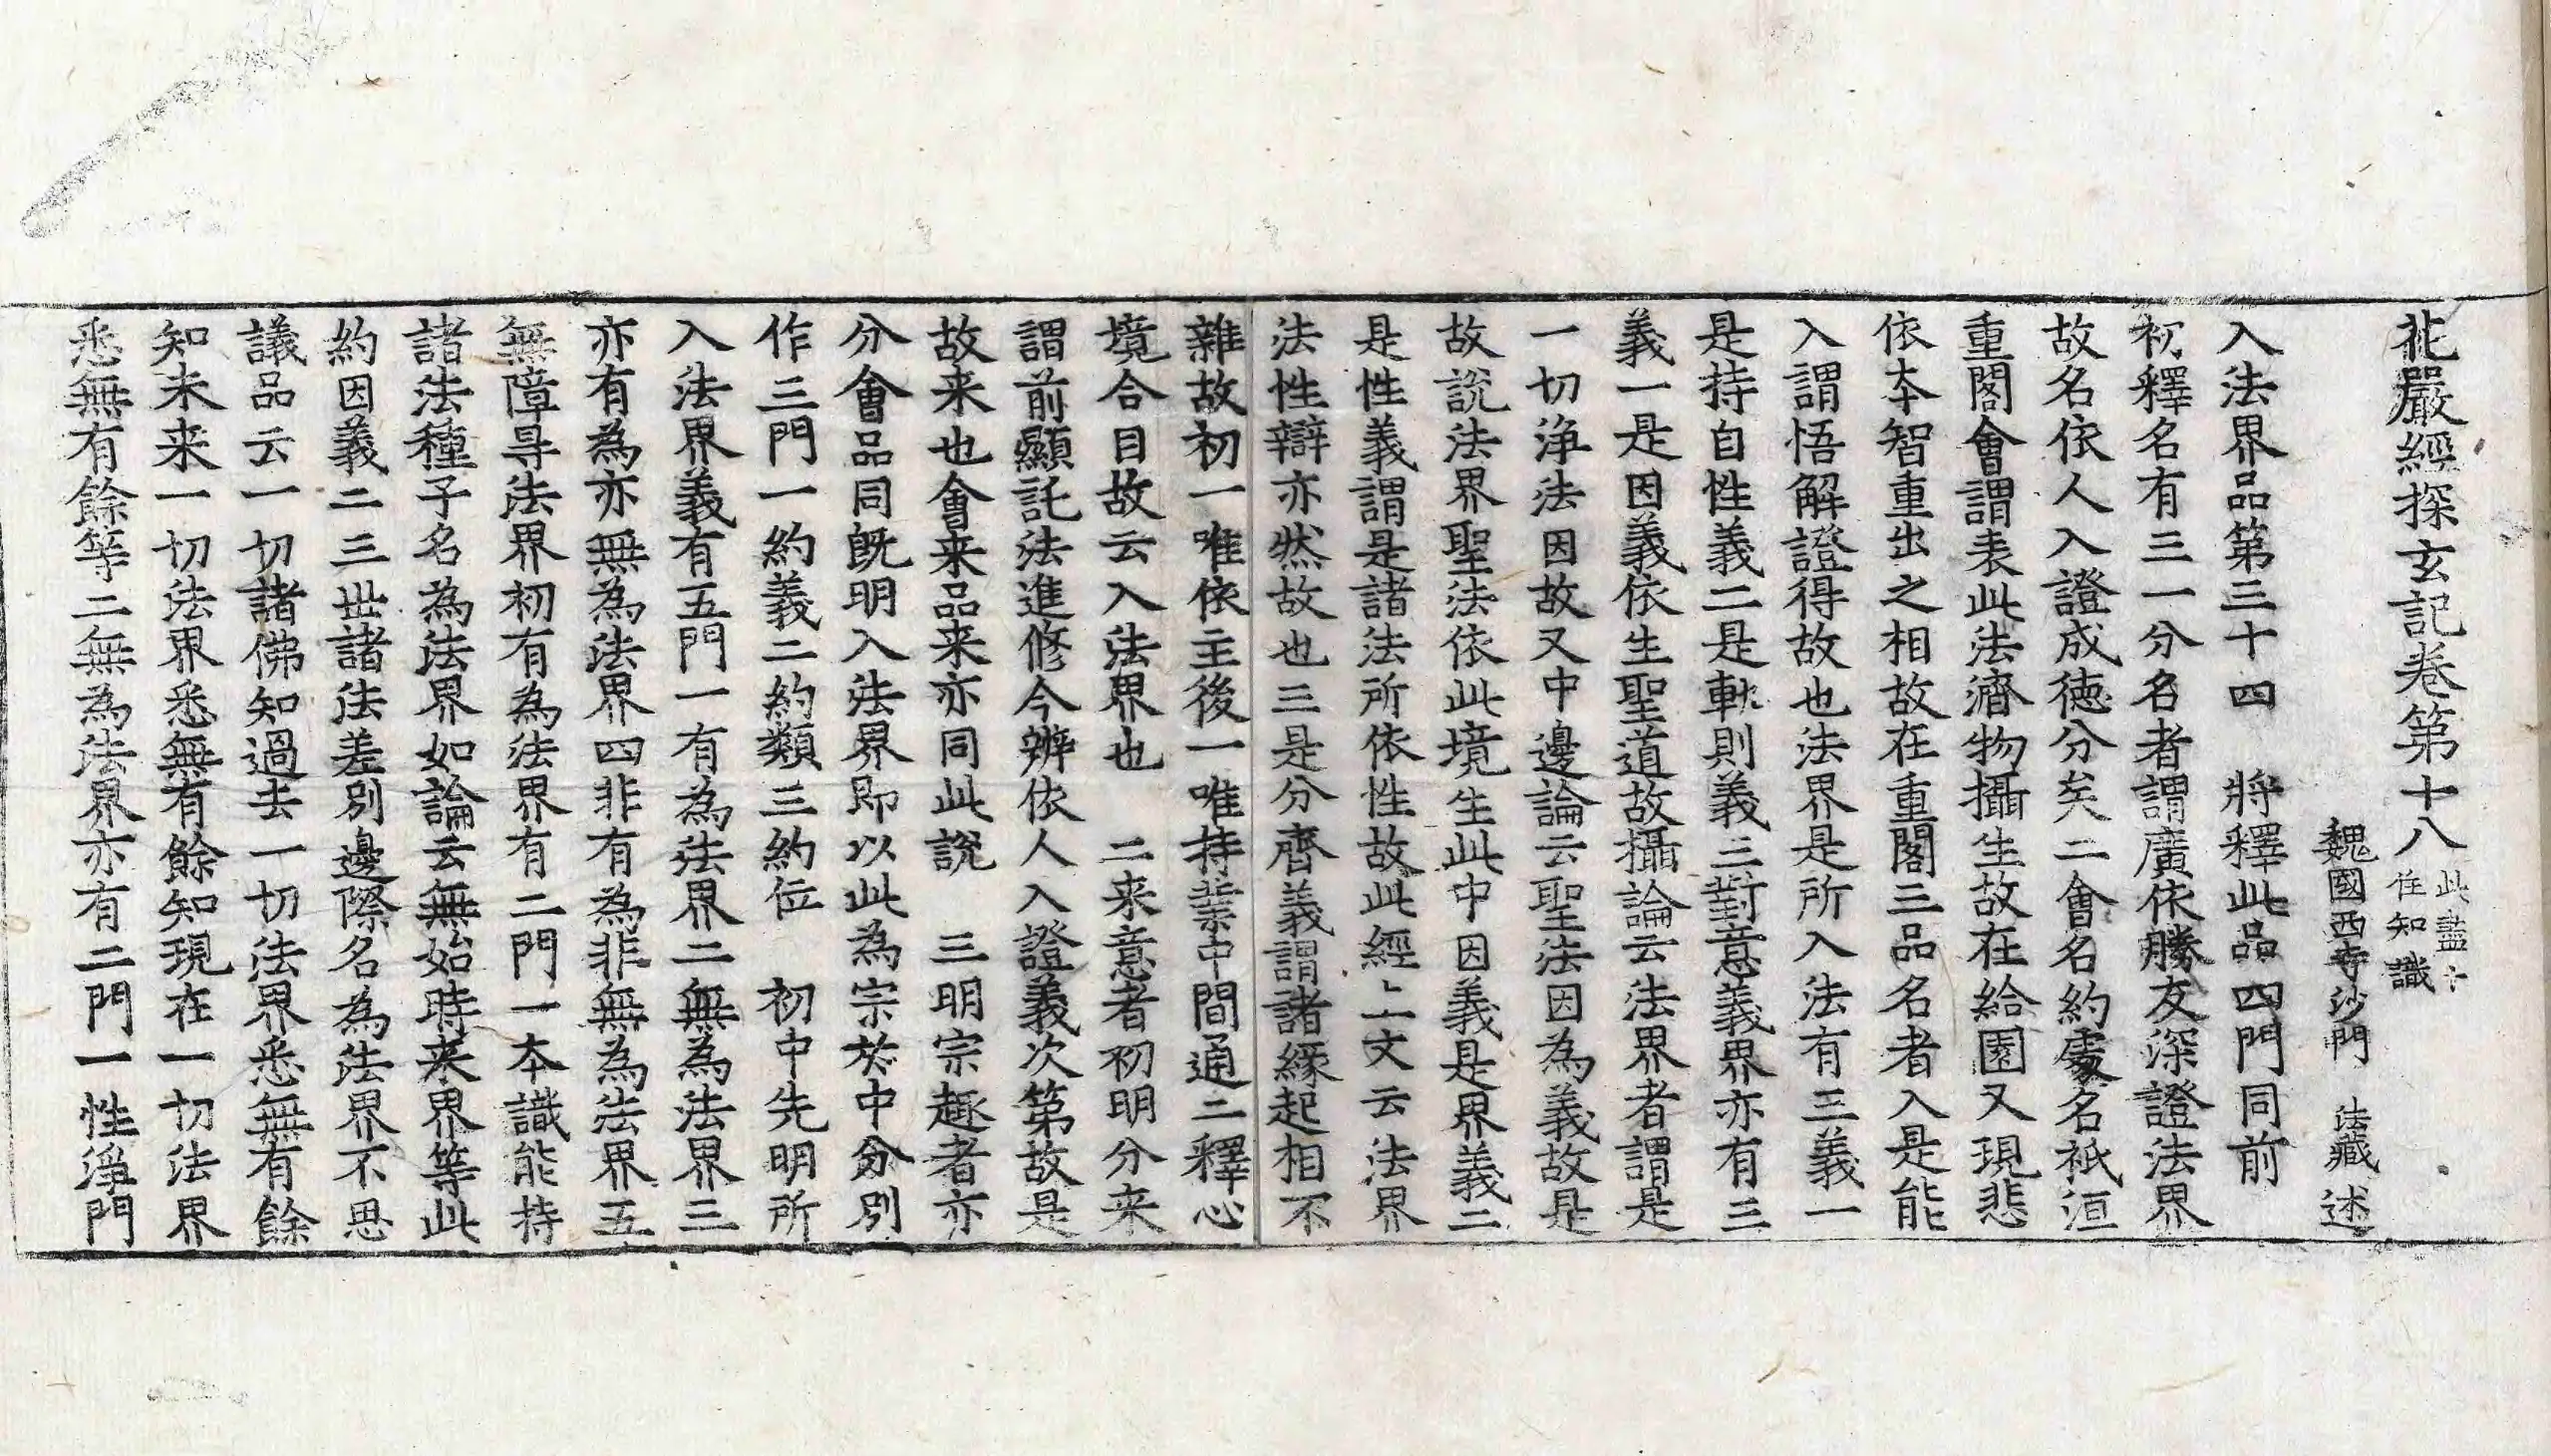 花嚴經探玄記卷第十八 此盡十住知識
魏國西寺沙門 法藏述
入法界品第三十四 將釋此品四門同前
初釋名有三一分名者謂廣依勝友深證法界
故名依人入證成德分矣二會名約處名祇洹
重閣會謂表此法濟物攝生故在給園又現悲
依本智重出之相故在重閣三品名者入是能
入謂悟解證得故也法界是所入法有三義一
是持自性義二是軌則義三對意義界亦有三
義一是因義依生聖道故攝論云法界者謂是
一切淨法因故又中邊論云聖法因為義故是
故說法界聖法依此境生此中因義是界義二
是性義謂是諸法所依性故此經上文云法界
法性辯亦然故也三是分齊義謂諸緣起相不
雜故初一唯依主後一唯持業中間通二釋心
境合目故云入法界也 二来意者初明分来
謂前顯託法進修今辨依人入證義次第故是
故来也會来品来亦同此說 三明宗趣者亦
分會品同既明入法界即以此為宗於中分別
作三門一約義二約類三約位 初中先明所
入法界義有五門一有為法界二無為法界三
亦有為亦無為法界四非有為非無為法界五
無障导法界初有為法界有二門一本識能持
諸法種子名為法界如論云無始時来界等此
約因義二三世諸法差別邊際名為法界不思
議品云一切諸佛知過去一切法界悉無有餘
知未来一切法界悉無有餘知現在一切法界
悉無有餘等二無為法界亦有二門一性淨門